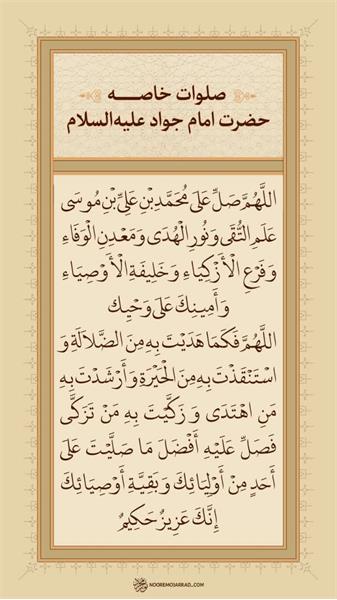 صلوات خاصه
حضرت امام جواد علیه‌السلام
اللَّهُمَّ صَلِّ عَلَى مُحَمَّدِ بْنِ عَلِيِّ بْنِ مُوسَى
عَلَمِ التُّقَى وَ نُورِ الْهُدَى وَ مَعْدِنِ الْوَفَاءِ
وَ فَرْعِ الْأَزْكِيَاءِ وَ خَلِيفَةِ الْأَوْصِيَاءِ
وَ أَمِينِكَ عَلَى وَحْيِكَ
اللَّهُمَّ فَكَمَا هَدَيْتَ بِهِ مِنَ الضَّلَالَةِ وَ
اسْتَنْقَذْتَ بِهِ مِنَ الْحَيْرَةِ وَ أَرْشَدْتَ بِهِ
مَنِ اهْتَدَى وَ زَكَّيْتَ بِهِ مَنْ تَزَكَّى
فَصَلِّ عَلَيْهِ أَفْضَلَ مَا صَلَّيْتَ عَلَى
أَحَدٍ مِنْ أَوْلِيَائِكَ وَ بَقِيَّةِ أَوْصِيَائِكَ
إِنَّكَ عَزِيزٌ حَكِيمٌ
NOOREMOJARRAD.COM